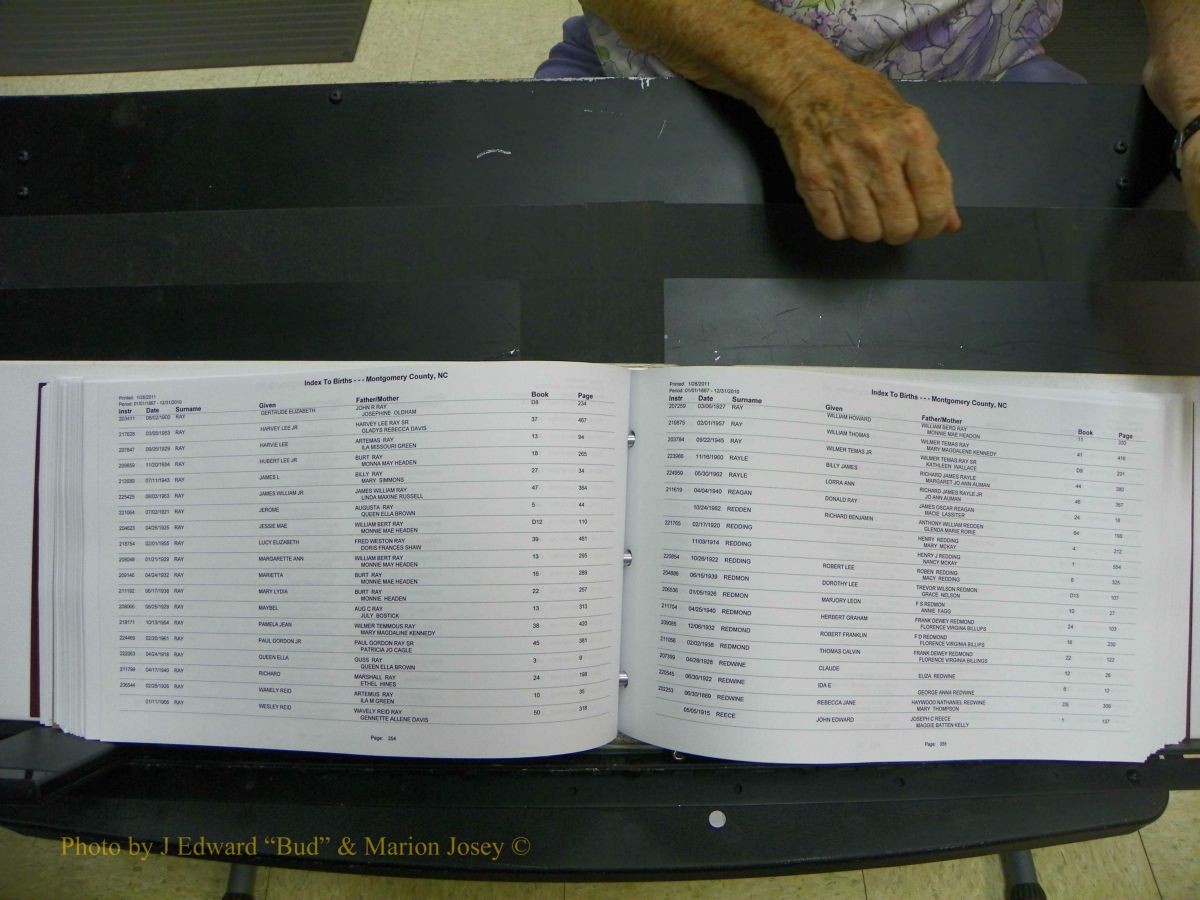 Index To Births - - - Montgomery County, NC
Printed: 1/28/2011
Period: 01/01/1867 - 12/31/2010
Instr Date Surname Given Father/Mother Book Page
203411 RAY GERTRUDE ELIZABETH JOHN R RAY D8 234
JOSEPHINE OLDHAM
217628 RAY HARVEY LEE JR HARVEY LEE RAY SR 37 467
GLADYS REBECCA DAVIS
207847 RAY HARVIE LEE ARTEMAS RAY 13 94
ILA MISSOURI GREEN
209859 11/20/1934 RAY HUBERT LEE JR BURT RAY 18 265
MONNA MAY HEADEN
212089 07/11/1943 RAY JAMES L BILLY RAY 27 34
MARY SIMMONS
225425 RAY JAMES WILLIAM JR JAMES WILLIAM RAY 47 354
LINDA MAXINE RUSSELL
221094 07/02/1921 RAY JEROME AUGUSTA RAY 5 44
QUEEN ELLA BROWN
204623 04/26/1925 RAY JESSIE MAE WILLIAM BERT RAY D12 110
MONNIE MAE HEADEN
218754 02/01/1955 RAY LUCY ELIZABETH FRED WESTON RAY 39 461
DORIS FRANCES SHAW
208048 01/21/1929 RAY MARGARETTE ANN WILLIAM BERT RAY 13 295
MONNIE MAY HEADEN
209146 04/24/1932 RAY MARIETTA BURT RAY 16 289
MONNIE MAE HEADEN
211192 05/17/1938 RAY MARY LYDIA BURT RAY 22 257
MONNIE HEADEN
208066 RAY MAYBEL AUG C RAY 13 313
JULY BOSTICK
218171 10/13/1954 RAY PAMELA JEAN WILMER TEMMOUS RAY 38 420
MARY MAGDALINE KENNEDY
224469 02/20/1961 RAY PAUL GORDON JR PAUL GORDON RAY SR 45 381
PATRICIA JO CAGLE
222063 04/24/1918 RAY QUEEN ELLA GUES RAY 3 9
QUEEN ELLA BROWN
211799 04/17/1940 RAY RICHARD MARSHALL RAY 24 198
ETHEL HINES
206544 02/26/1926 RAY WANELY REID ARTEMUS RAY 10 35
ILA M GREEN
01/11/1966 RAY WESLEY REID WAVELY REID RAY 50 318
GENNETTE ALLENE DAVIS
Page: 354
Index To Births - - - Montgomery County, NC
Printed: 1/28/2011
Period: 01/01/1867 - 12/31/2010
Instr Date Surname Given Father/Mother Book Page
207259 03/06/1927 RAY WILLIAM HOWARD WILLIAM BERD RAY 11 330
MONNIE MAE HEADON
219875 02/01/1957 RAY WILLIAM THOMAS WILMER TEMAS RAY 41 416
MARY MAGDALENE KENNEDY
203784 09/22/1945 RAY WILMER TEMAS JR WILMER TEMAS RAY SR D9 201
KATHLEEN WALLACE
223966 11/16/1960 RAYLE BILLY JAMES RICHARD JAMES RAYLE 44
MARGARET JO ANN AUMAN
224959 06/30/1962 RAYLE LORRA ANN RICHARD JAMES RAYLE JR 46 367
JO ANN AUMAN
211619 04/04/1940 REAGAN DONALD RAY JAMES OSCAR REAGAN 24 18
MACIE LASSITER
10/24/1982 REDDEN RICHARD BENJAMIN ANTHONY WILLIAM REDDEN 64 198
GLENDA MARIE RORIE
221765 02/17/1920 REDDING HENRY REDDING 4 212
MARY MCKAY
11/09/1914 REDDING ROBERT LEE HENRY J REDDING 1 554
NANCY MCKAY
220854 10/26/1922 REDDING DOROTHY LEE ROBEN REDDING 6 325
MACY REDDING
204886 06/15/1939 REDMON MARJORY LEON TREVOR WILSON REDMON D13 107
GRACE NELSON
206536 01/05/1926 REDMON HERBERT GRAHAM F S REDMON 10 27
ANNIE FAGG
211704 04/25/1940 REDMOND ROBERT FRANKLIN FRANK DEWEY REDMOND 24 103
FLORENCE VIRGINIA BILLUPS
209085 12/06/1932 REDMOND THOMAS CALVIN F D REDMOND 16 230
FLORENCE VIRGINIA BILLUPS
211058 02/02/1938 REDMOND CLAUDE FRANK DEWEY REDMOND 22 122
FLORENCE VIRGINIA BILLINGS
207399 04/29/1928 REDWINE IDA E ELIZA REDWINE 12 26
220545 06/30/1922 REDWINE REBECCA JANE GEORGE ANNA REDWINE 6 12
202253 06/30/1889 REDWINE HAYWOOD NATHANIEL REDWINE 306
MARY THOMPSON
05/05/1915 REECE JOHN EDWARD JOSEPH C REECE 1 137
MAGGIE BATTEN KELLY
Page: 355
Photo by J Edward “Bud” & Marion Josey ©